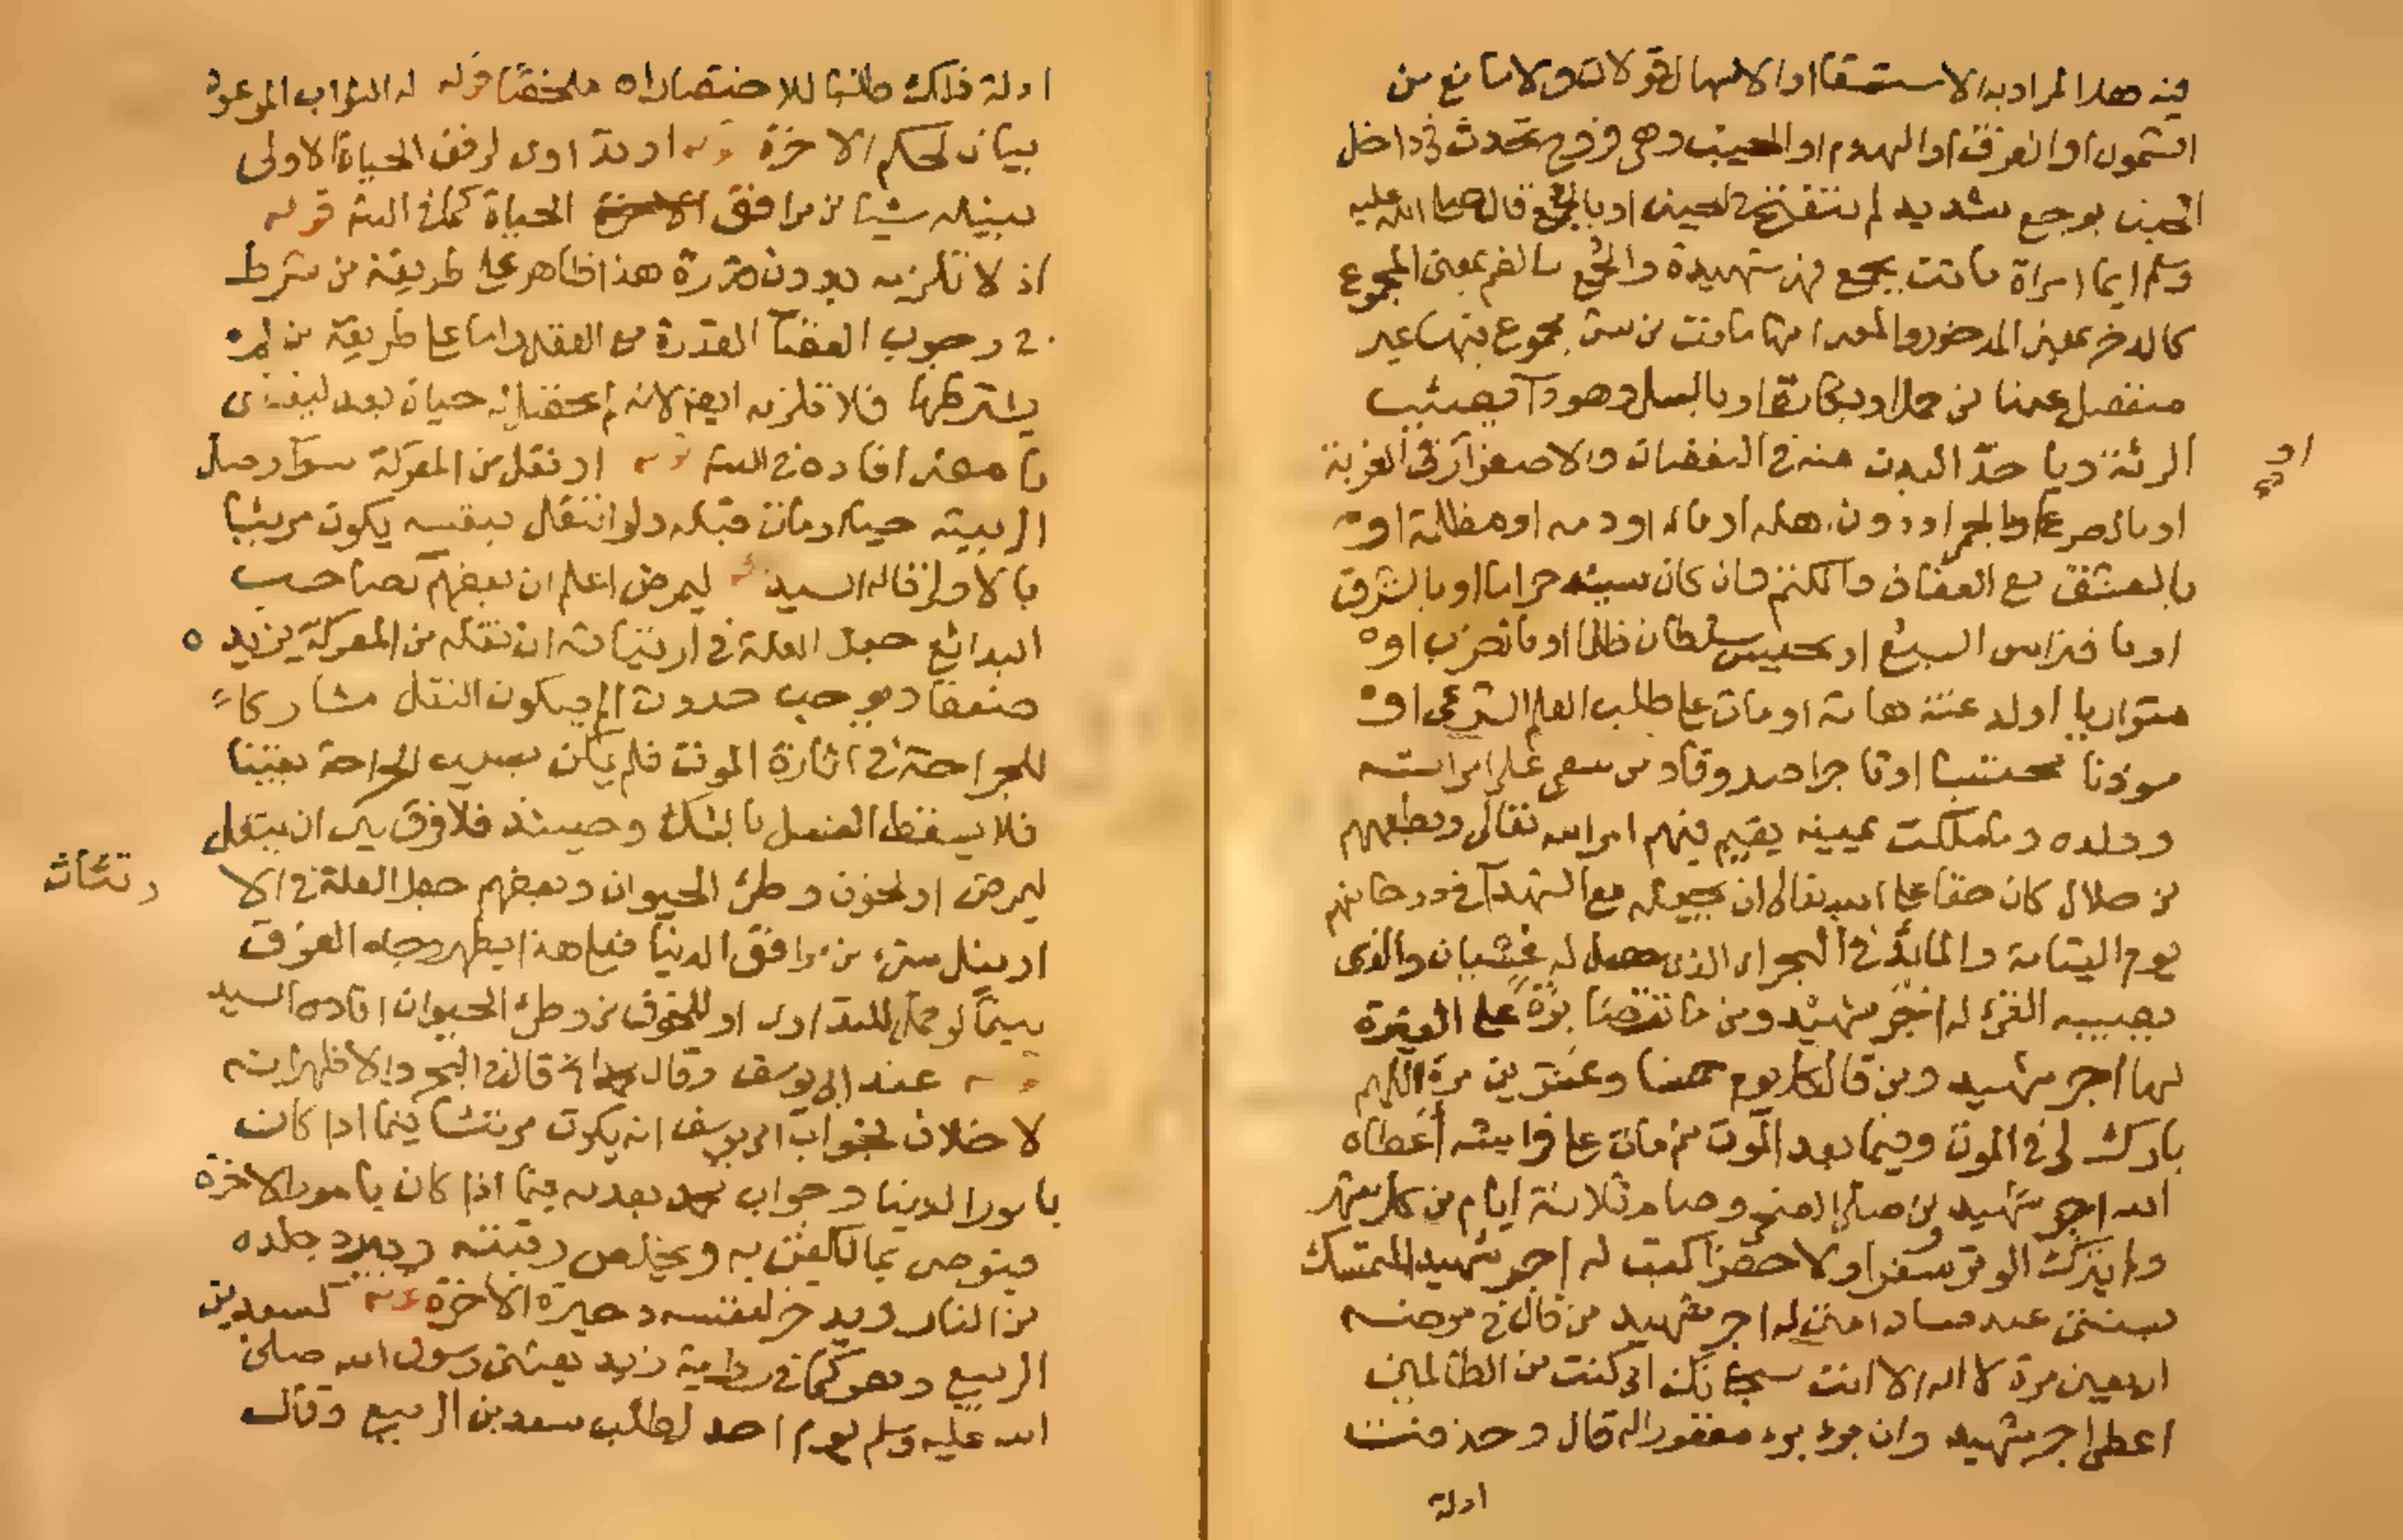 فيه هذا المراد به الاستسقا او الاسهال قولان ولا مانع من
الشمول او الغرق او الهدم او الجنب وهي قروح تحدث في داخل
الجنب بوجع شديد ثم تنفتح في الجنب او بالجمع قال صلى الله عليه
وسلم ايما امراة ماتت بجمع فهي شهيدة والجمع بالضم بمعنى المجموع
كالدخر بمعنى المدخور والمعنى انها ماتت من شئ مجموع فيها غير
منفصل عنها من حمل او بكارة او بالسل وهو داء يصيب
الرئة ويأخذ البدن منه في النقصان والاصفرار او في الغربة
او بالصرع او بالحمى او دون اهله او ماله او دمه او مظلمة او
بالعشق مع العفاف والكتم وان كان سببه حراما او بالشرق
او بافتراس السبع او بحبس سلطان ظلما او بالضرب او
متواريا او لدغته هامة او مات على طلب العلم الشرعي او
موذنا محتسبا او تاجرا صدوقا ومن سعى على امراته
وولده وما ملكت يمينه يقيم فيهم امر الله تعالى ويطعمهم
من حلال كان حقا على الله تعالى ان يجعله مع الشهدآ في درجاتهم
يوم القيامة والمائد في البحر اى الذى حصل له غثيان والذى
يصيبه القئ له اجر شهيد ومن ماتت صابرة على الغيرة
لها اجر شهيد ومن قال كل يوم خمسا وعشرين مرة اللهم
بارك لى في الموت وفيما بعد الموت ثم مات على فراشه أعطاه
الله اجر شهيد ومن صلى الضحى وصام ثلاثة ايام من كل شهر
ولم يترك الوتر سفرا ولا حضرا كتب له اجر شهيد المتمسك
بسنتى عند فساد امتى له اجر شهيد من قال في مرضه
اربعين مرة لا اله الا انت سبحانك انى كنت من الظالمين
اعطى اجر شهيد وان برئ برئ مغفورا له قال وحذفت
ادلة
او
ادلة ذلك طلبا للاختصار اه ملخصا قوله له الثواب الموعود
بيان لحكم الاخرة قوله او تداوى لرفق الحياة الاولى
بنيله شيئا من مرافق الحياة كما في النهر قوله
اذ لا تلزمه بدون قدرة هذا ظاهر على طريقة من شرط
في وجوب القضآ القدرة مع العقل واما على طريقة من لم
يشترطها فلا تلزمه ايضا لانه لم يحصل له حياة بعد ليقضى
ما مضى افاده في النهر قوله او نقل من المعركة سوآ وصل
الى بيته حيا او مات قبله ولو انتقل بنفسه يكون مرتثا
بالاولى قاله السيد قوله ليمرض اعلم ان بعضهم كصاحب
البدائع جعل العلة في ارتثاثه ان نقله من المعركة يزيد ه
ضعفا ويوجب حدوث الم فيكون النقل مشاركا
للجراحة في اثارة الموت فلم يكن بسبب الجراحة يقينا
فلا يسقط الغسل بالشك وحينئذ فلا فرق بين ان ينقل
ليمرض او لخوف وطئ الحيوان وبعضهم جعل العلة في الا
رتثاث
او بنيل شئ من مرافق الدنيا فعلى هذا يظهر وجه الفرق
بينما لو حمل للتداوى او للخوف من وطئ الحيوان افاده السيد
قوله عند ابى يوسف وقال محمد الخ قال في البحر والاظهر انه
لا خلاف فجواب ابى يوسف انه يكون مرتثا فيما اذا كان
بامور الدنيا وجواب محمد بعدمه فيما اذا كان بامور الاخرة
فيتوصى بما يخلص رقبته ويبرد جلده
من النار ويدخر لنفسه ذخيرة الاخرة قوله كسعد بن
الربيع وهو كما في رواية زيد بعثنى رسول الله صلى
الله عليه وسلم يوم احد لطلب سعد بن الربيع وقال